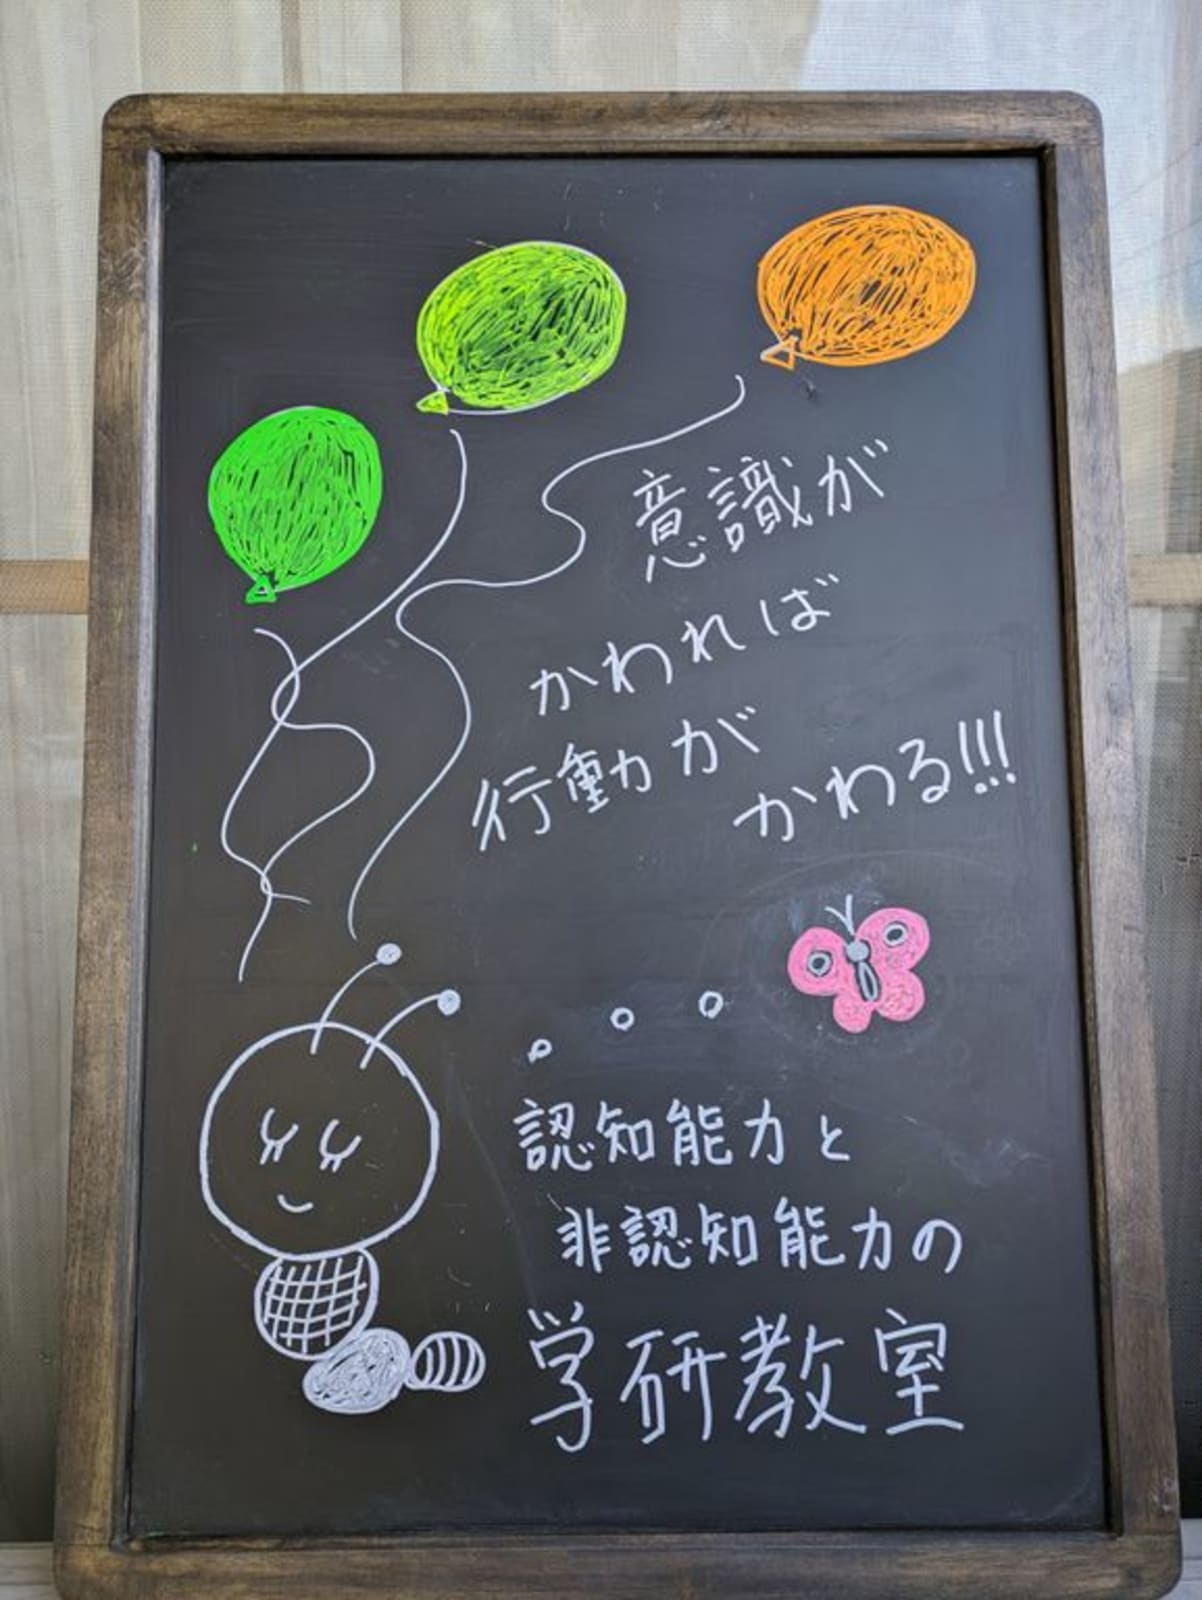 意識が
かわれば
行動が
かわる!!!
認知能力と
非認知能力の
学研教室